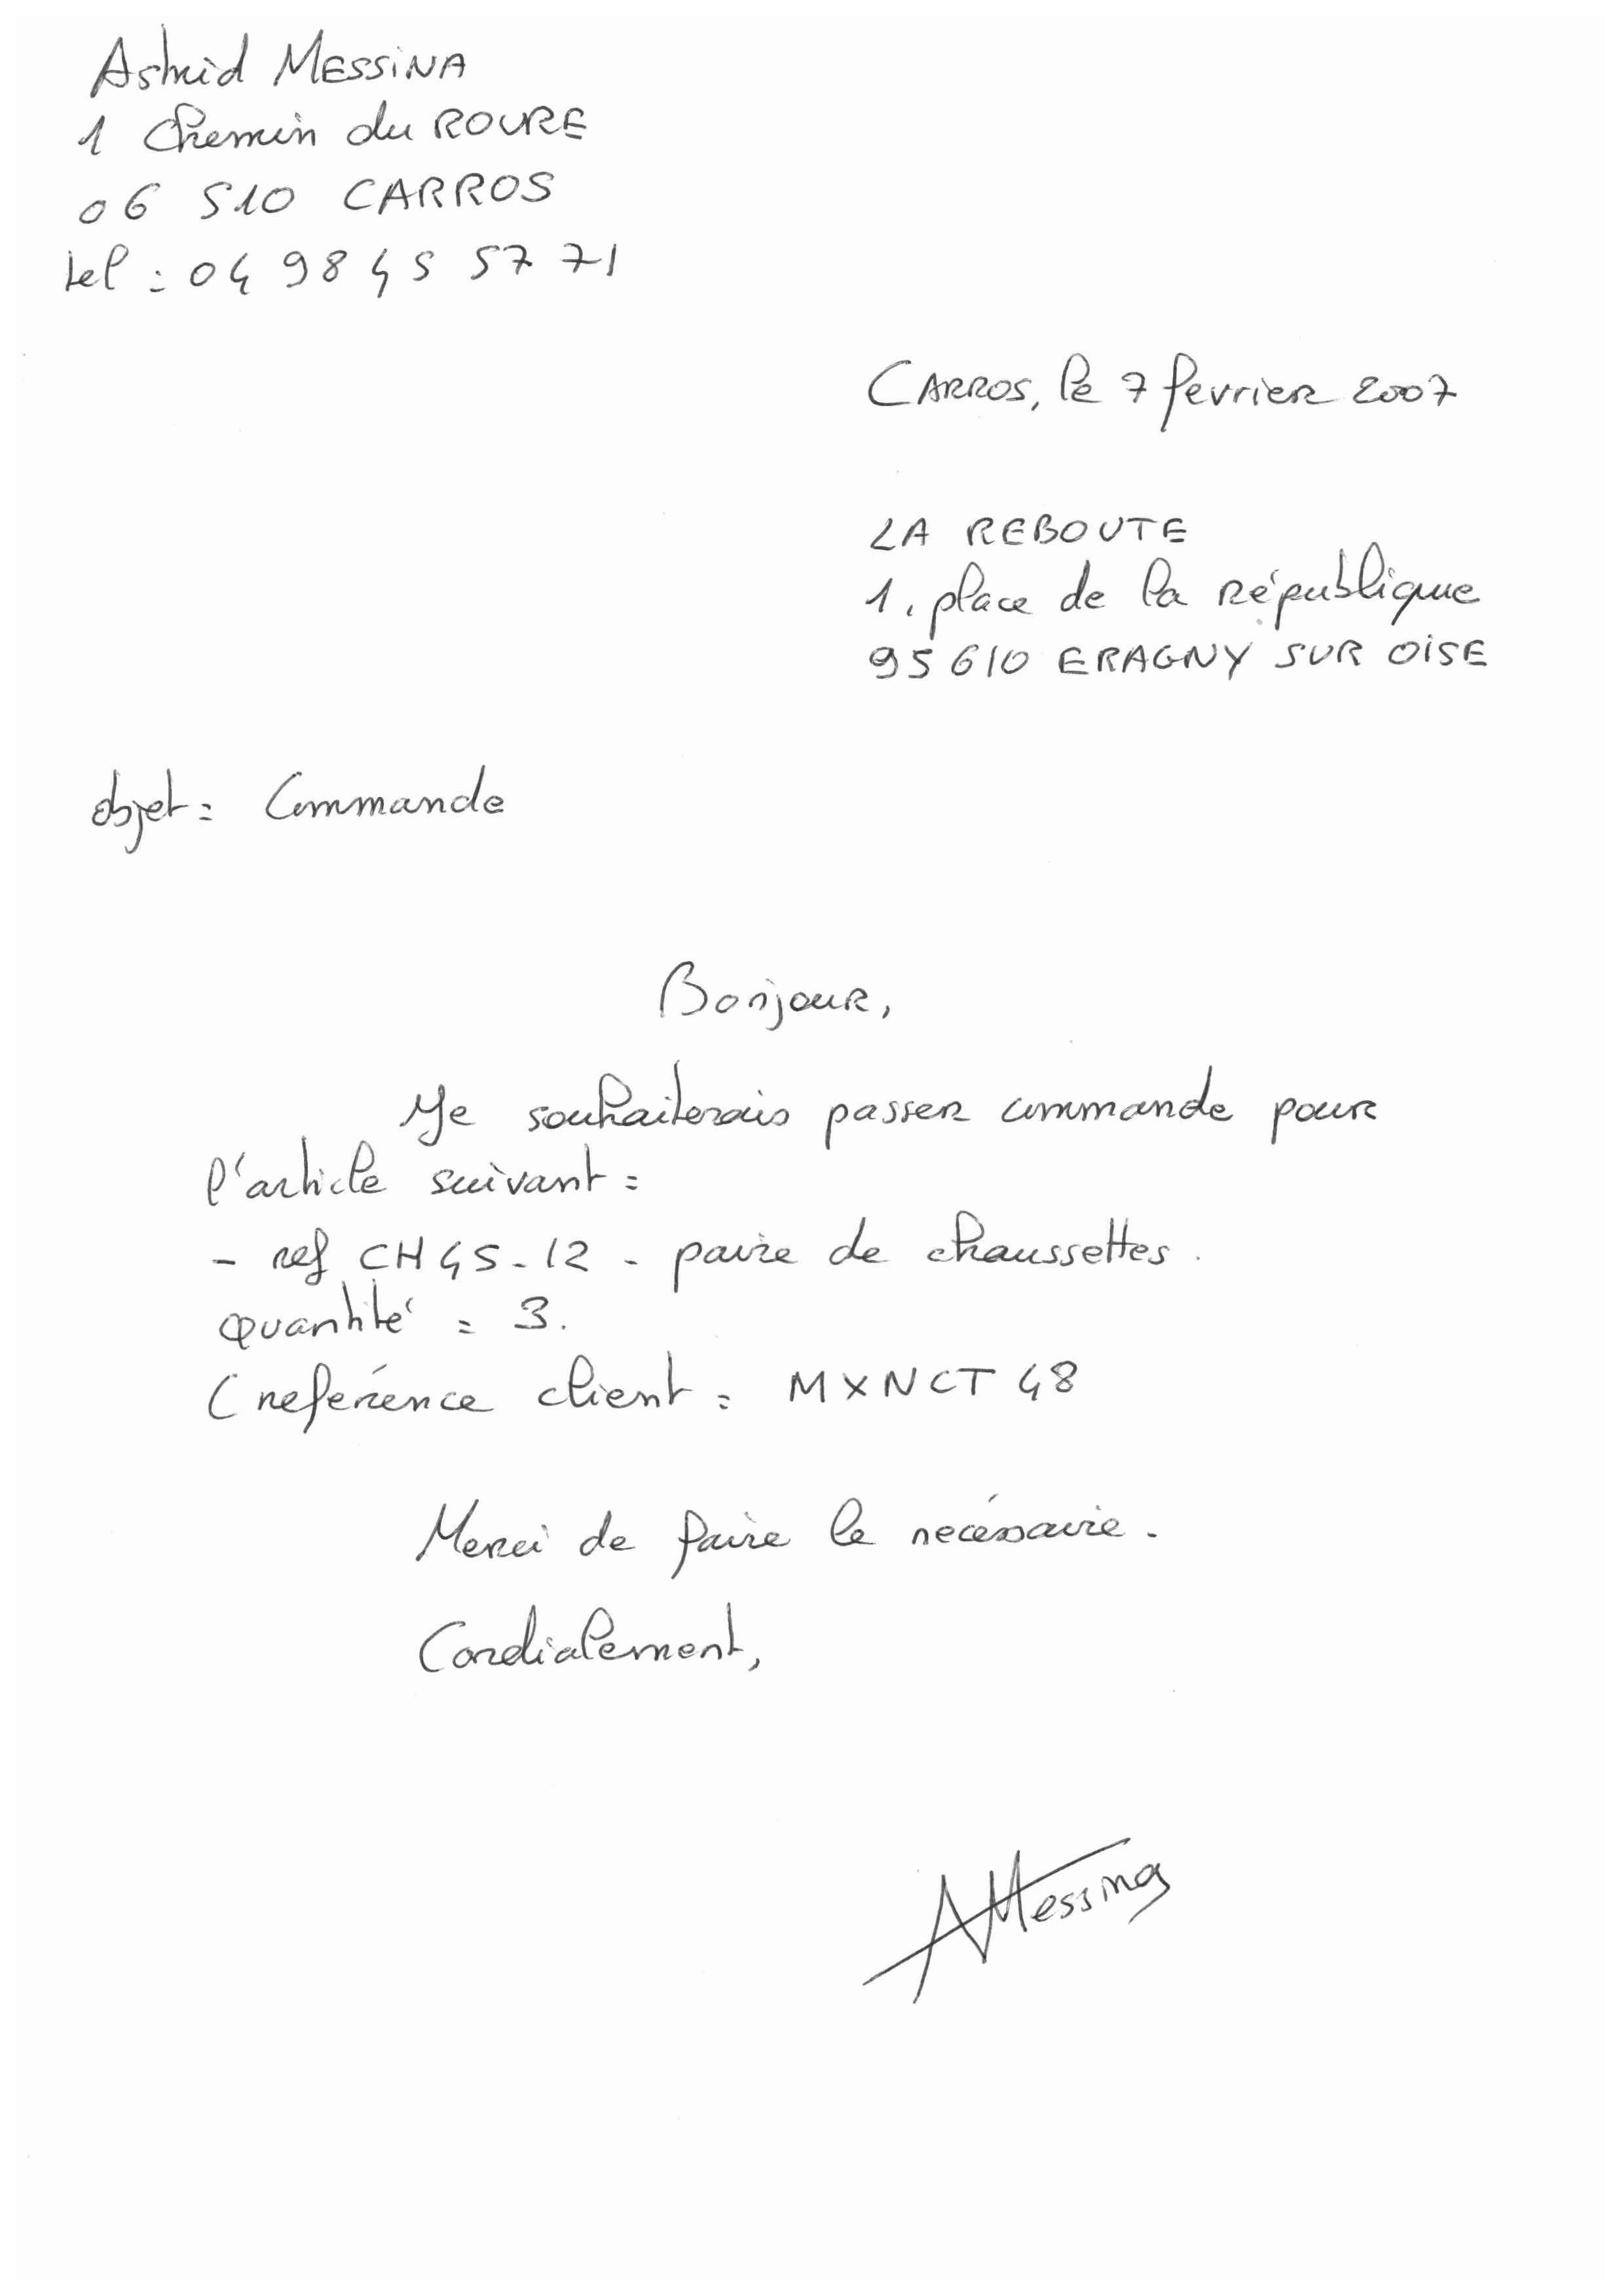 Astrid MESSINA
1 Chemin du ROURE
06 510 CARROS
tel : 04 98 45 57 71
CARROS, le 7 fevrier 2007
LA REBOUTE
1, place de la République
95 610 ERAGNY SUR OISE
objet : Commande
Bonjour,
Je souhaiterais passer commande pour
l'article suivant :
- ref CH45-12 - paire de chaussettes.
quantité : 3.
(reférence client : MXNCT 48
Merci de faire le necéssaire.
Cordialement,
AMessina